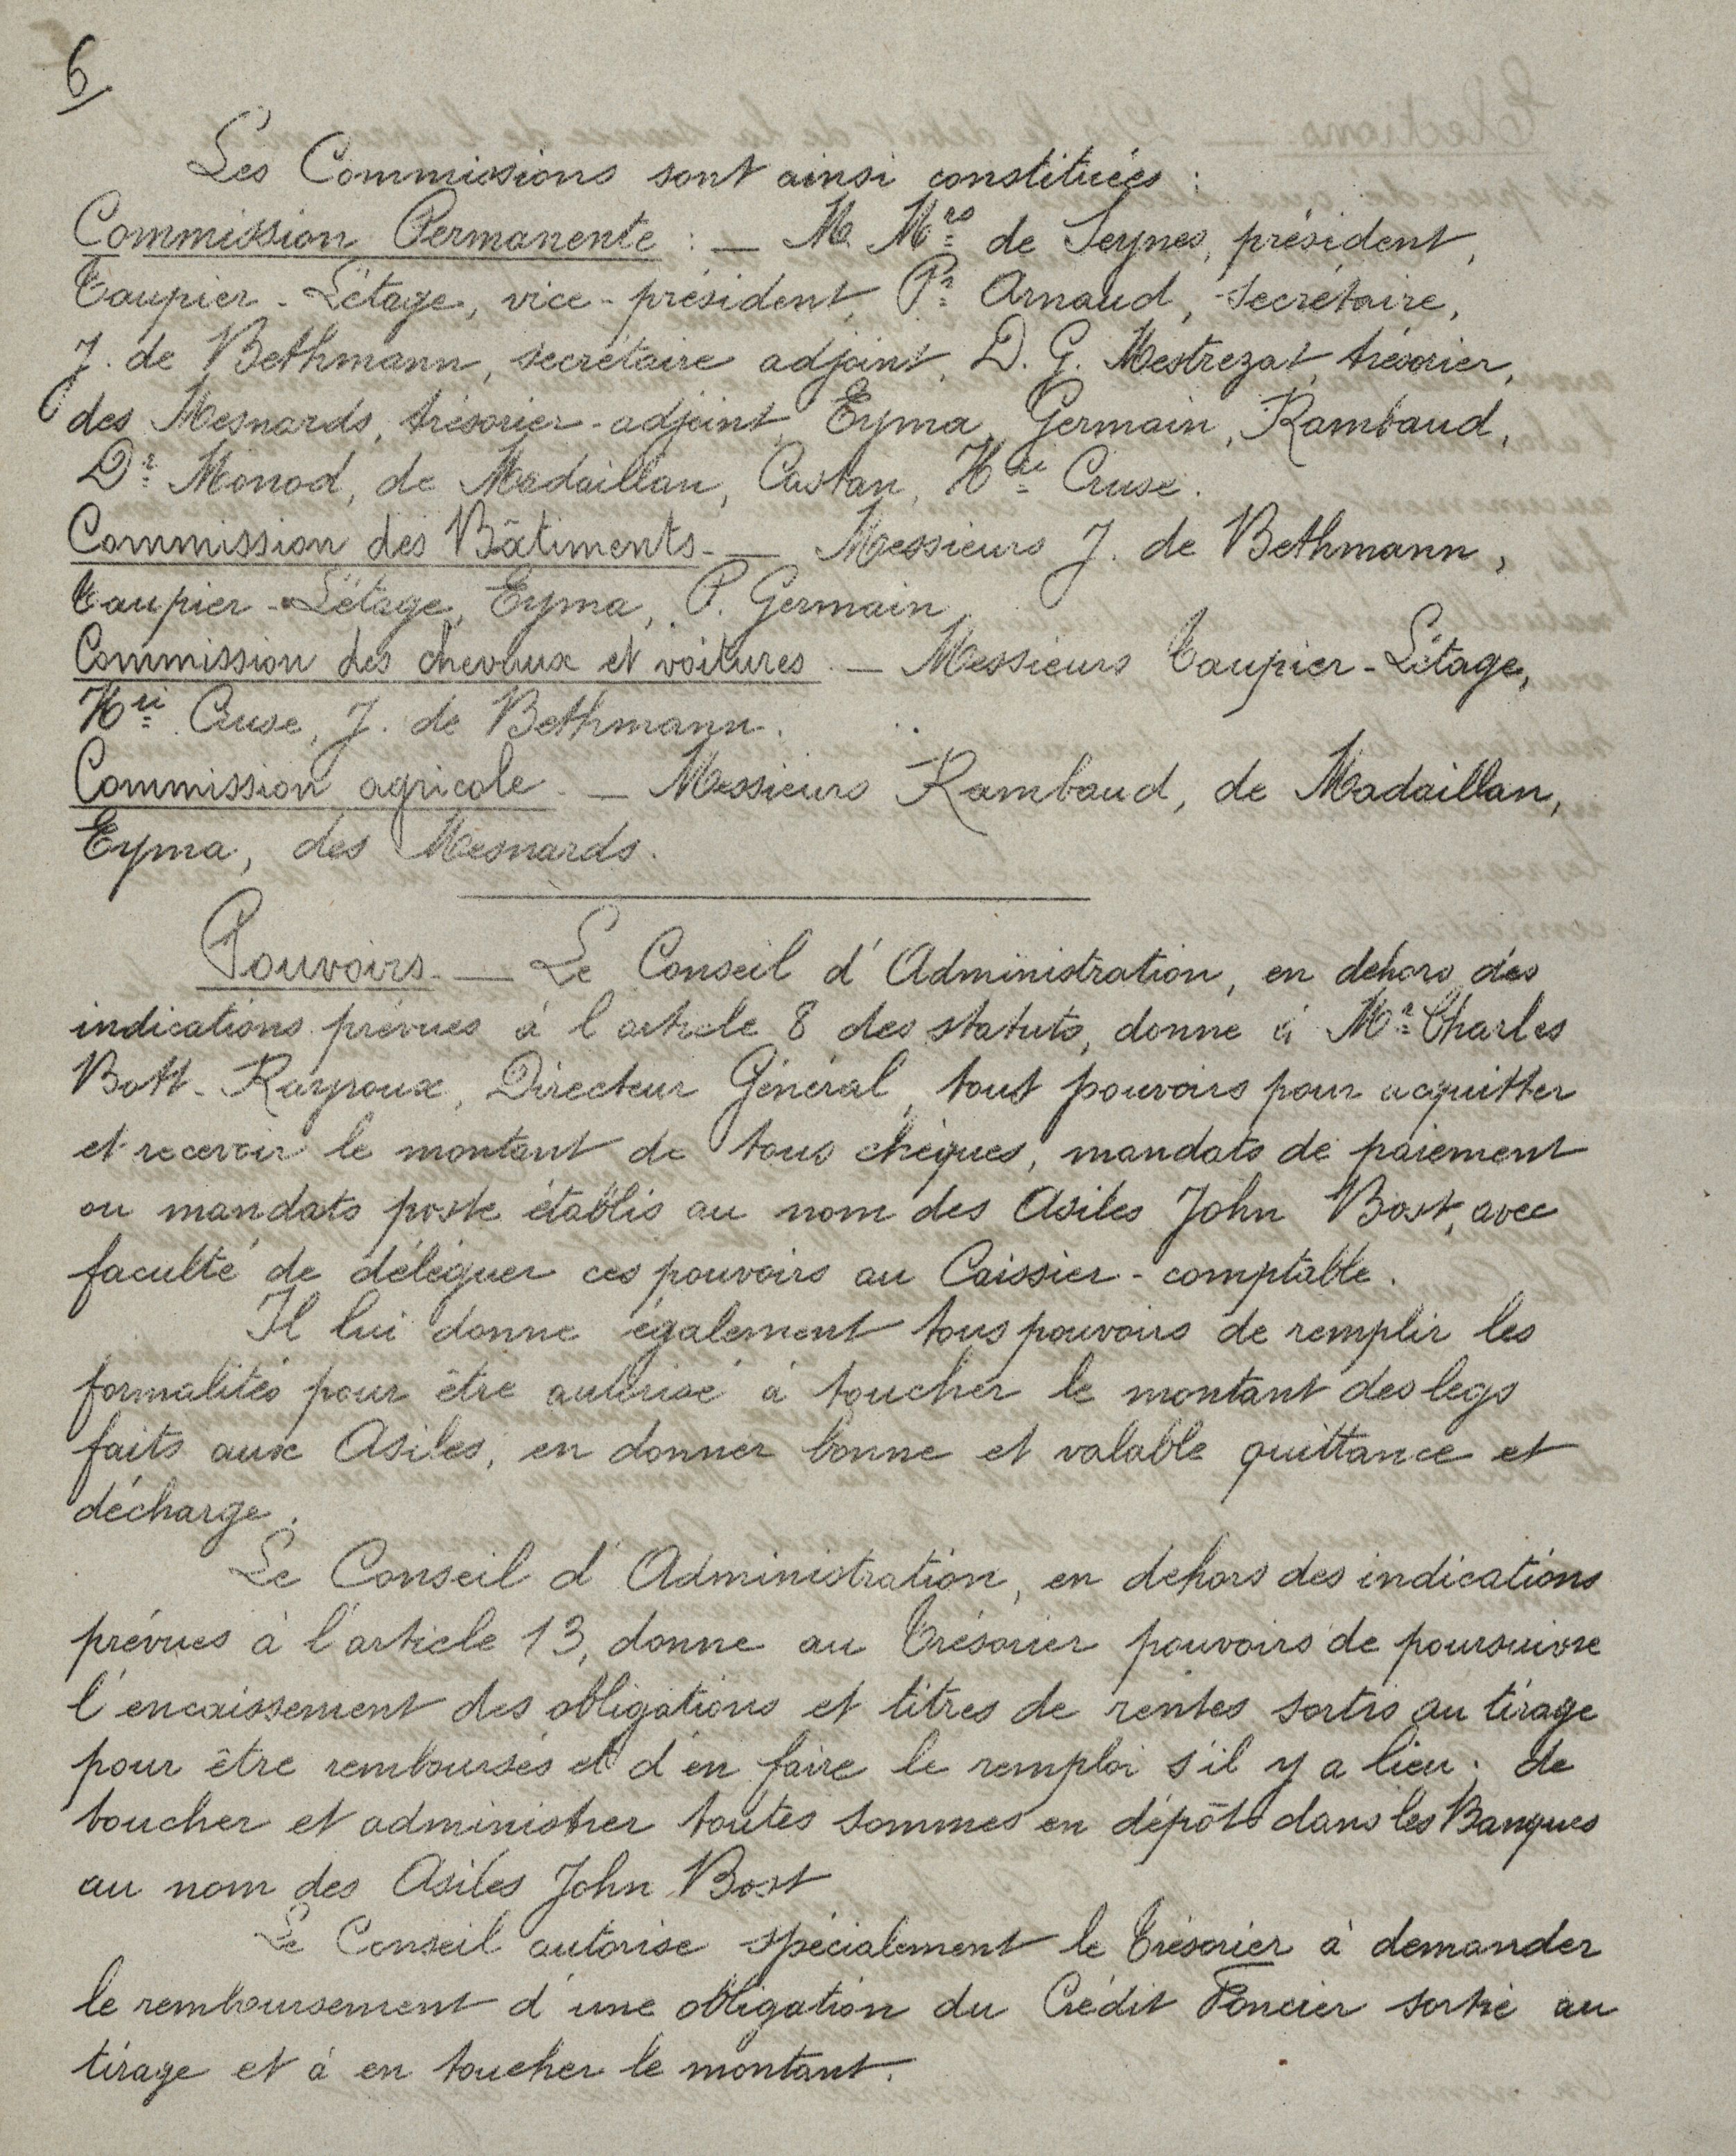 6
Les Commissions sont ainsi constituées :
Commission Permanente : — M. Mrs de Seynes, président,
Taupier-Létage, vice-président, Pr Arnaud, secrétaire,
J. de Bethmann, secrétaire adjoint, D. G. Mestrezat, trésorier,
des Mesnards, trésorier-adjoint, Eyma, Germain, Rambaud,
Dr Monod, de Madaillan, Castan, Hri Cruse.
Commission des Bâtiments. — Messieurs J. de Bethmann,
Taupier-Létage, Eyma, P. Germain,
Commission des chevaux et voitures. — Messieurs Taupier-Létage,
Hri Cruse, J. de Bethmann.
Commission agricole. — Messieurs Rambaud, de Madaillan,
Eyma, des Mesnards.
Pouvoirs. — Le Conseil d'Administration, en dehors des
indications prévues à l'article 8 des statuts, donne à Mr Charles
Bott-Rayroux, Directeur Général, tout pouvoirs pour acquitter
et recevoir le montant de tous chèques, mandats de paiement
ou mandats poste établis au nom des Asiles John Bost, avec
faculté de déléguer ces pouvoirs au Caissier-comptable.
Il lui donne également tous pouvoirs de remplir les
formalités pour être autorisé à toucher le montant des legs
faits aux Asiles, en donner bonne et valable quittance et
décharge.
Le Conseil d'Administration, en dehors des indications
prévues à l'article 13, donne au Trésorier pouvoirs de poursuivre
l'encaissement des obligations et titres de rentes sortis au tirage
pour être remboursés et d'en faire le remploi s'il y a lieu ; de
toucher et administrer toutes sommes en dépôts dans les Banques
au nom des Asiles John Bost
Le Conseil autorise spécialement le Trésorier à demander
le remboursement d'une obligation du Crédit Foncier sortie au
tirage et à en toucher le montant.